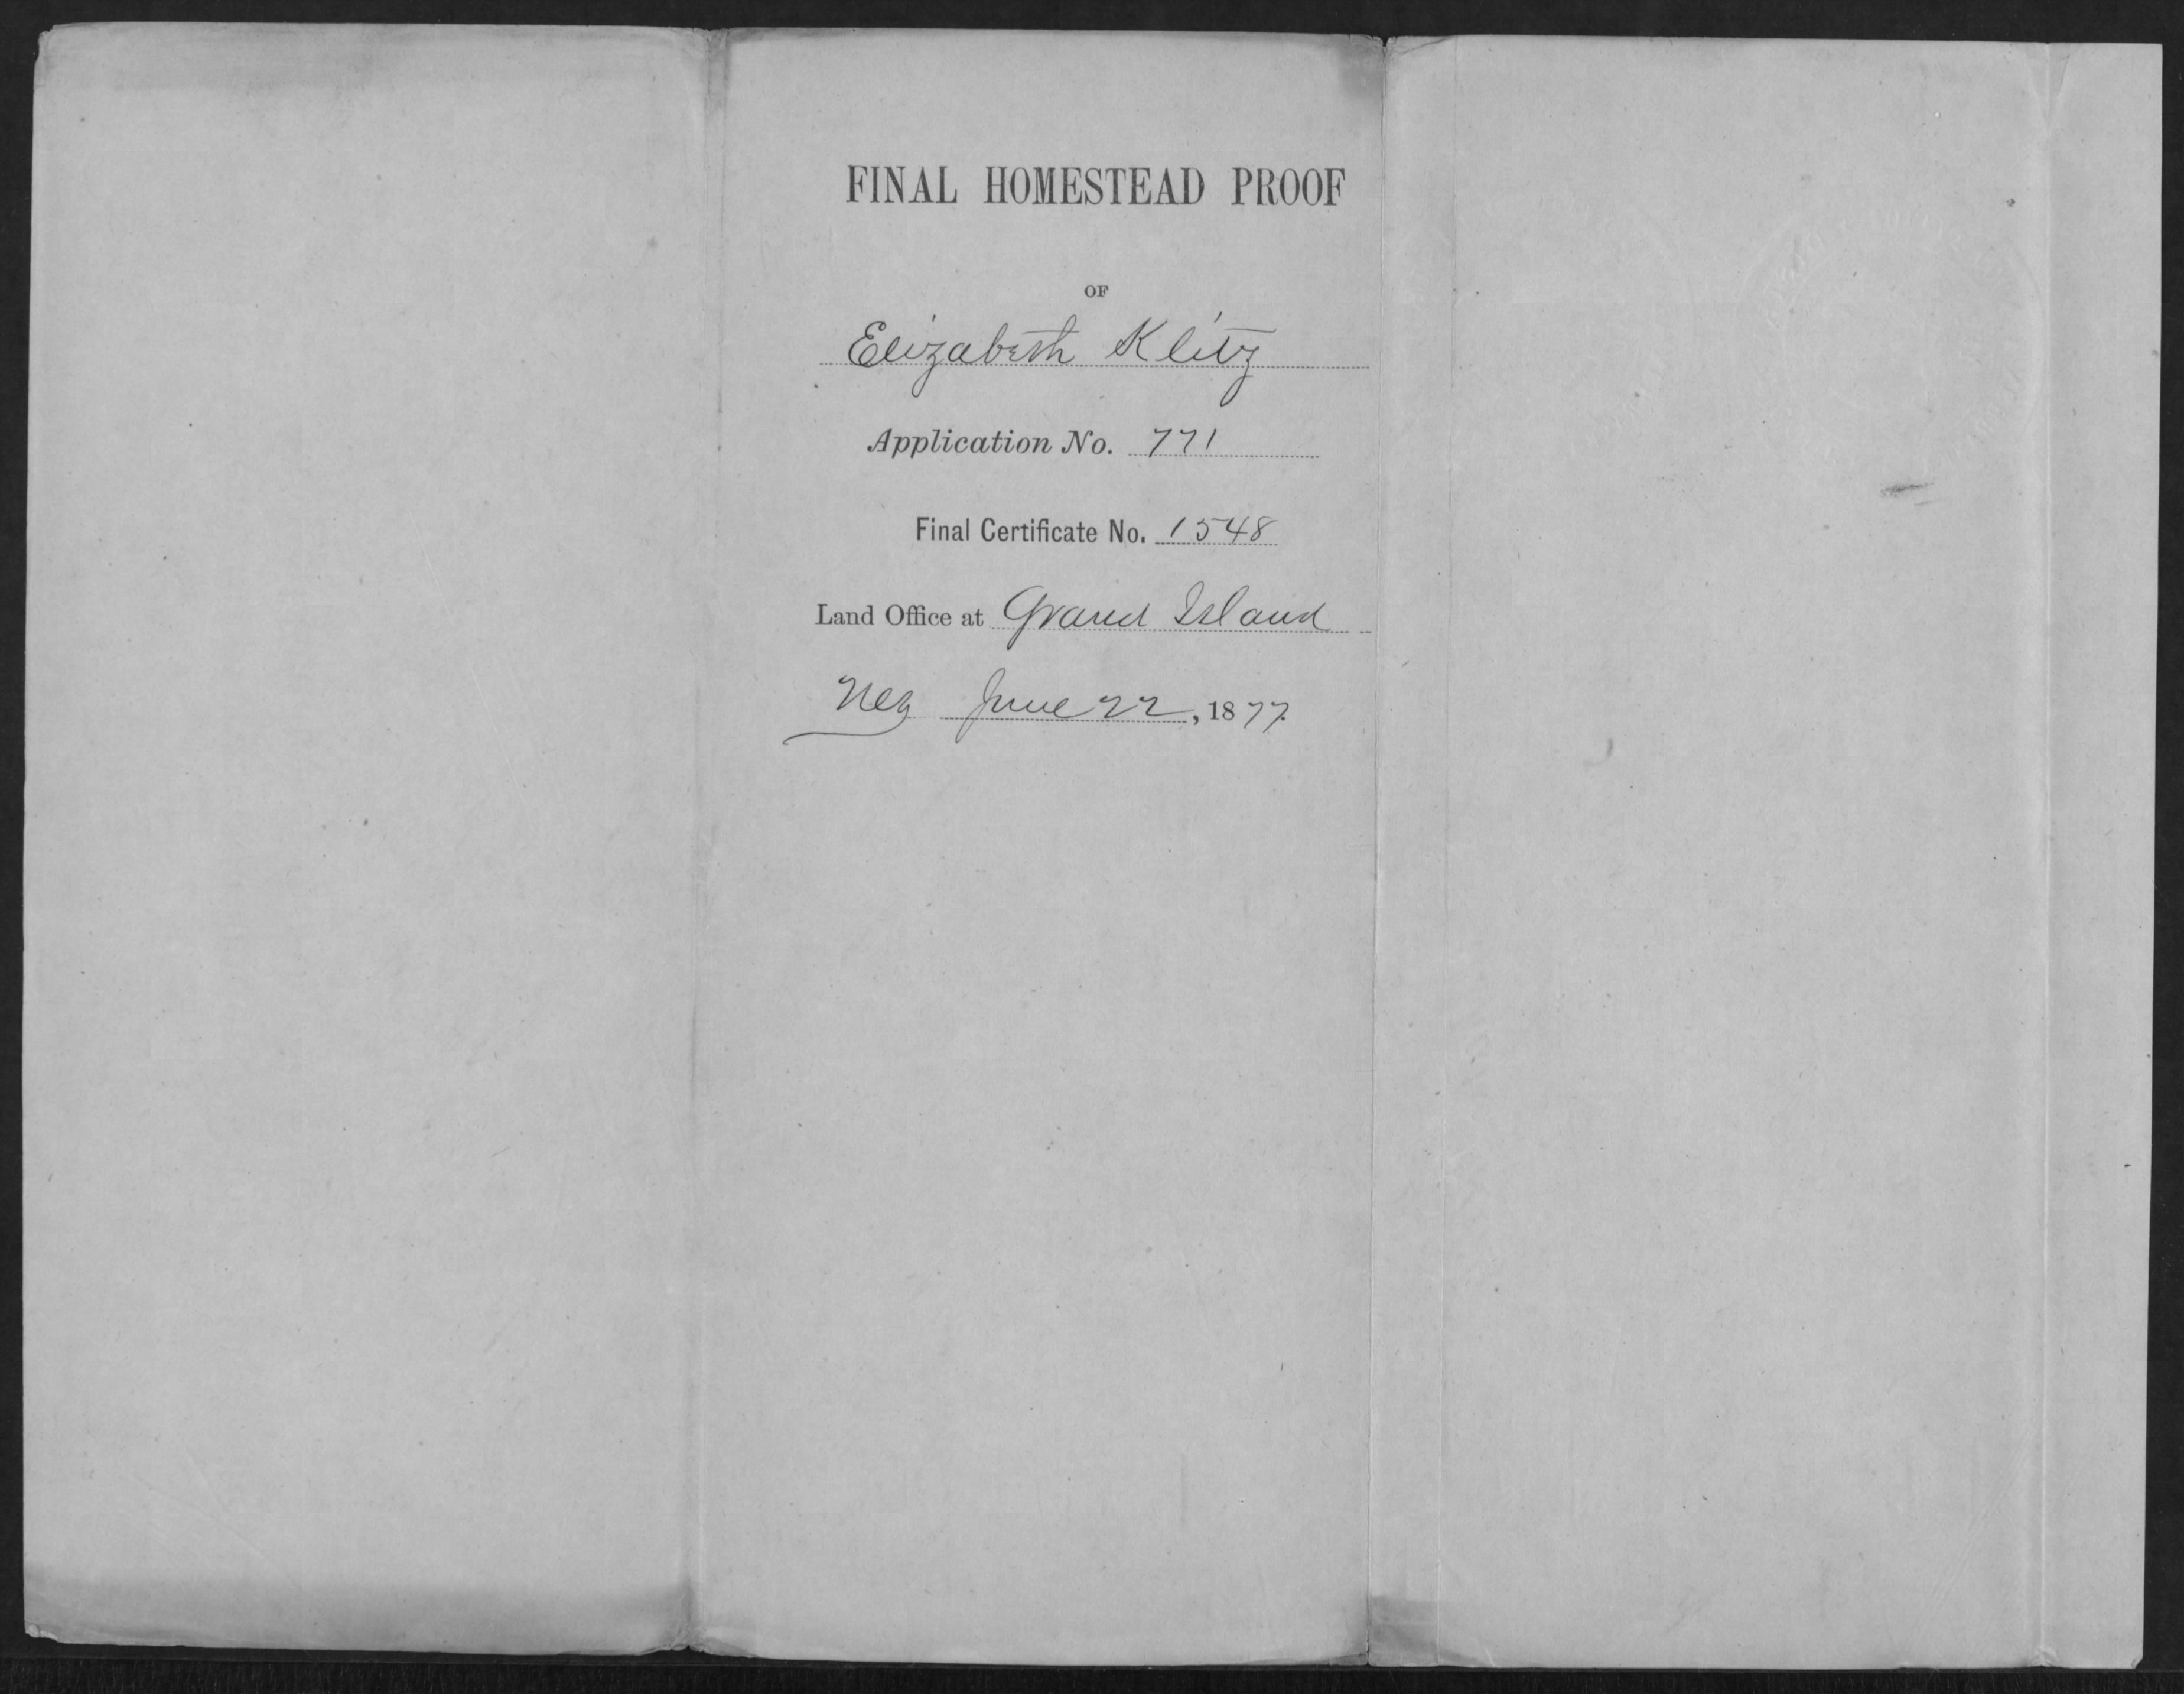 FINAL HOMESTEAD PROOF
OF
Elizabeth Klitz
Application No. 771
Final Certificate No. 1548
Land Office at Grand Island
Neb June 22, 1877.